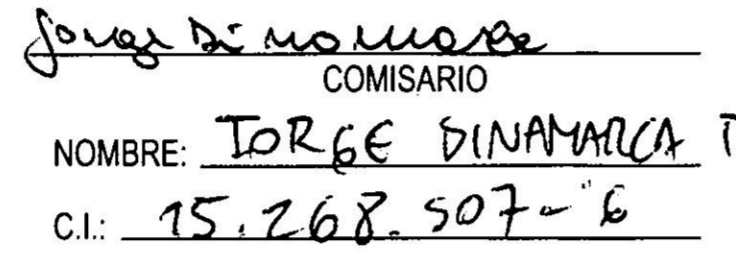 Jorge Dinamarca
COMISARIO
NOMBRE: JORGE DINAMARCA
C.I.: 15.268.507-6